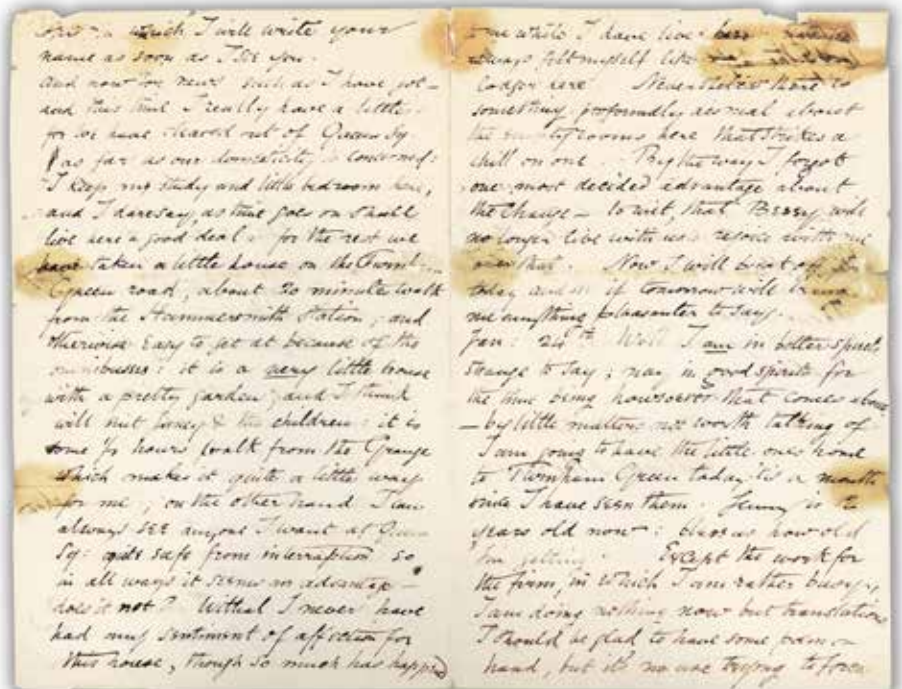 which I will write your
name as soon as I see you.
And now for news such as I have got —
and this time I really have a little
for we have cleared out of Queen Sq.
as far as our domesticity is concerned:
I keep my study and little bedroom here,
and I daresay as time goes on shall
live here a good deal: for the rest we
have taken a little house on the Turnham
Green road, about 20 minutes walk
from the Hammersmith Station, and
otherwise easy to get at because of the
omnibusses: it is a very little house
with a pretty garden, and I think
will suit Janey & the children: it is
some ½ hours walk from the Grange
which makes it quite a little way
for me; on the other hand I can
always see anyone I want at Queen
Sq: quite safe from interruption so
in all ways it seems an advantage —
does it not? Withal I never have
had any sentiment of affection for
this house, though so much has happened
to me while I have lived here
always felt myself like
lodger here. Nevertheless there is
something profoundly dismal about
the empty rooms here that strikes a
chill on one. By the way I forgot
one most decided advantage about
the change — to wit, that Bessy will
no longer live with us: rejoice with me
over that. Now I will break off
today and see if tomorrow will bring
me anything pleasanter to say.
Jan: 24th Well I am in better spirits
strange to say; nay in good spirits for
the time being howsoever that comes about
— by little matters not worth talking of
I am going to have the little ones home
to Turnham Green today: tis a month
since I have seen them. Jenny is
years old now: bless us how old
I'm getting. Except the work for
the firm, in which I am rather busy,
I am doing nothing now but translations
I should be glad to have some poem on
hand, but it's no use trying to force